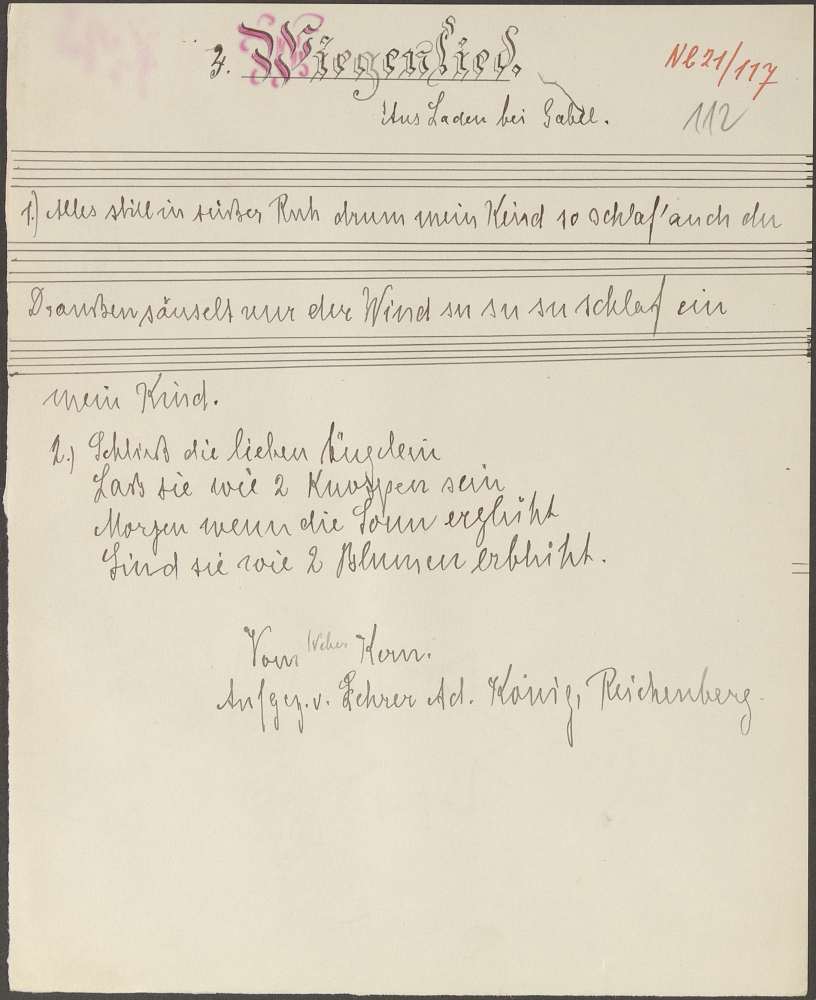 3. Wiegenlied.
Nl 21/117
Aus Laden bei Gabel.
112
1.) Alles still in süßer Ruh drum mein Kind so schlaf' auch du
Draußen säuselt nur der Wind su su su schlaf ein
mein Kind.
2.) Schließ die lieben Äuglein
Laß sie wie 2 Knospen sein
Morgen wenn die Sonn erglüht
Sind sie wie 2 Blumen erblüht.
Vom Weber Kern.
Aufgez. v. Lehrer Ad. König, Reichenberg.